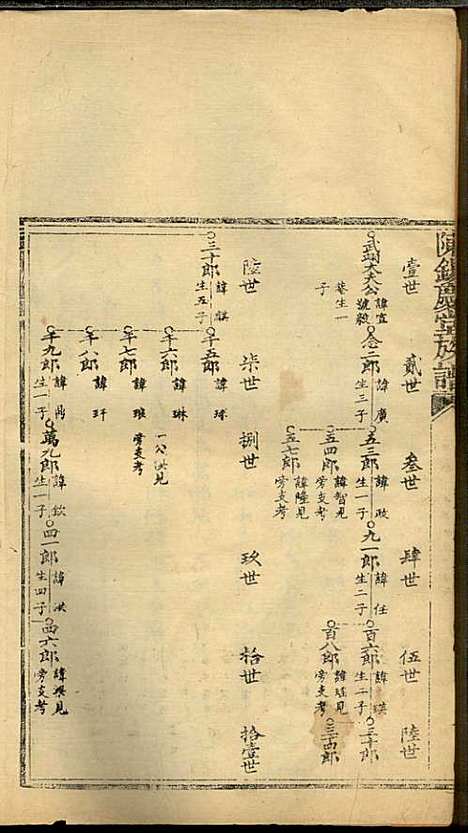 壹世
貳世
叁世
肆世
伍世
陸世
武畧大夫公 諱宣 號毅
菴生一
子
念二郎 諱廣 生三子
五三郎 諱政 生一子
九一郎 諱任 生二子
百六郎 諱瑛 生二子
三十郎
五四郎 諱智見 旁支考
百八郎 諱瑤見 旁支考
三十四郎
五七郎 諱隆見 旁支考
陸世
柒世
捌世
玖世
拾世
拾壹世
三十郎 諱祺 生五子
千五郎 諱球
千六郎 諱琳
一公派見
旁支考
千七郎 諱琟
千八郎 諱玕
千九郎 諱鼎 生一子
萬九郎 諱欽 生一子
四一郎 諱洪 生四子
西六郎 諱祺見 旁支考